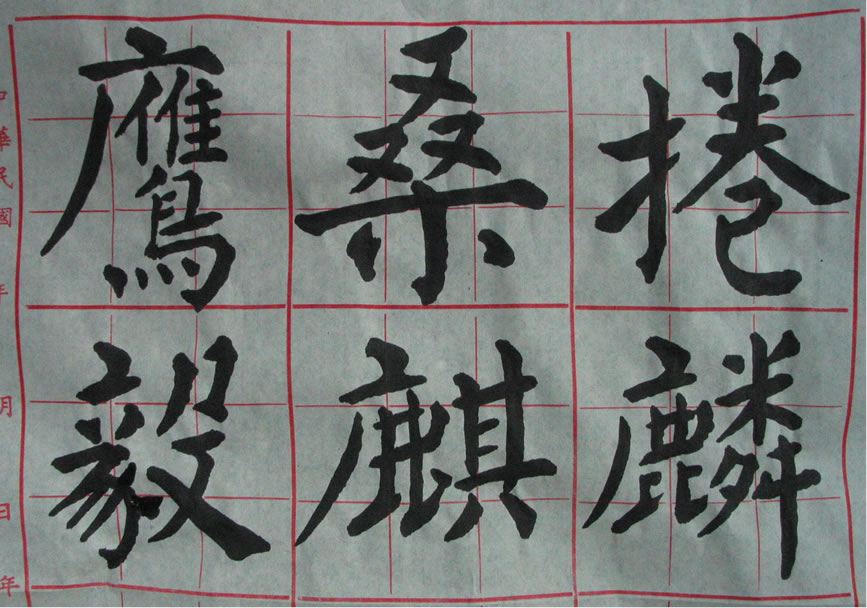 鷹桑捲
毅麒麟
華民國 年 月 日 年